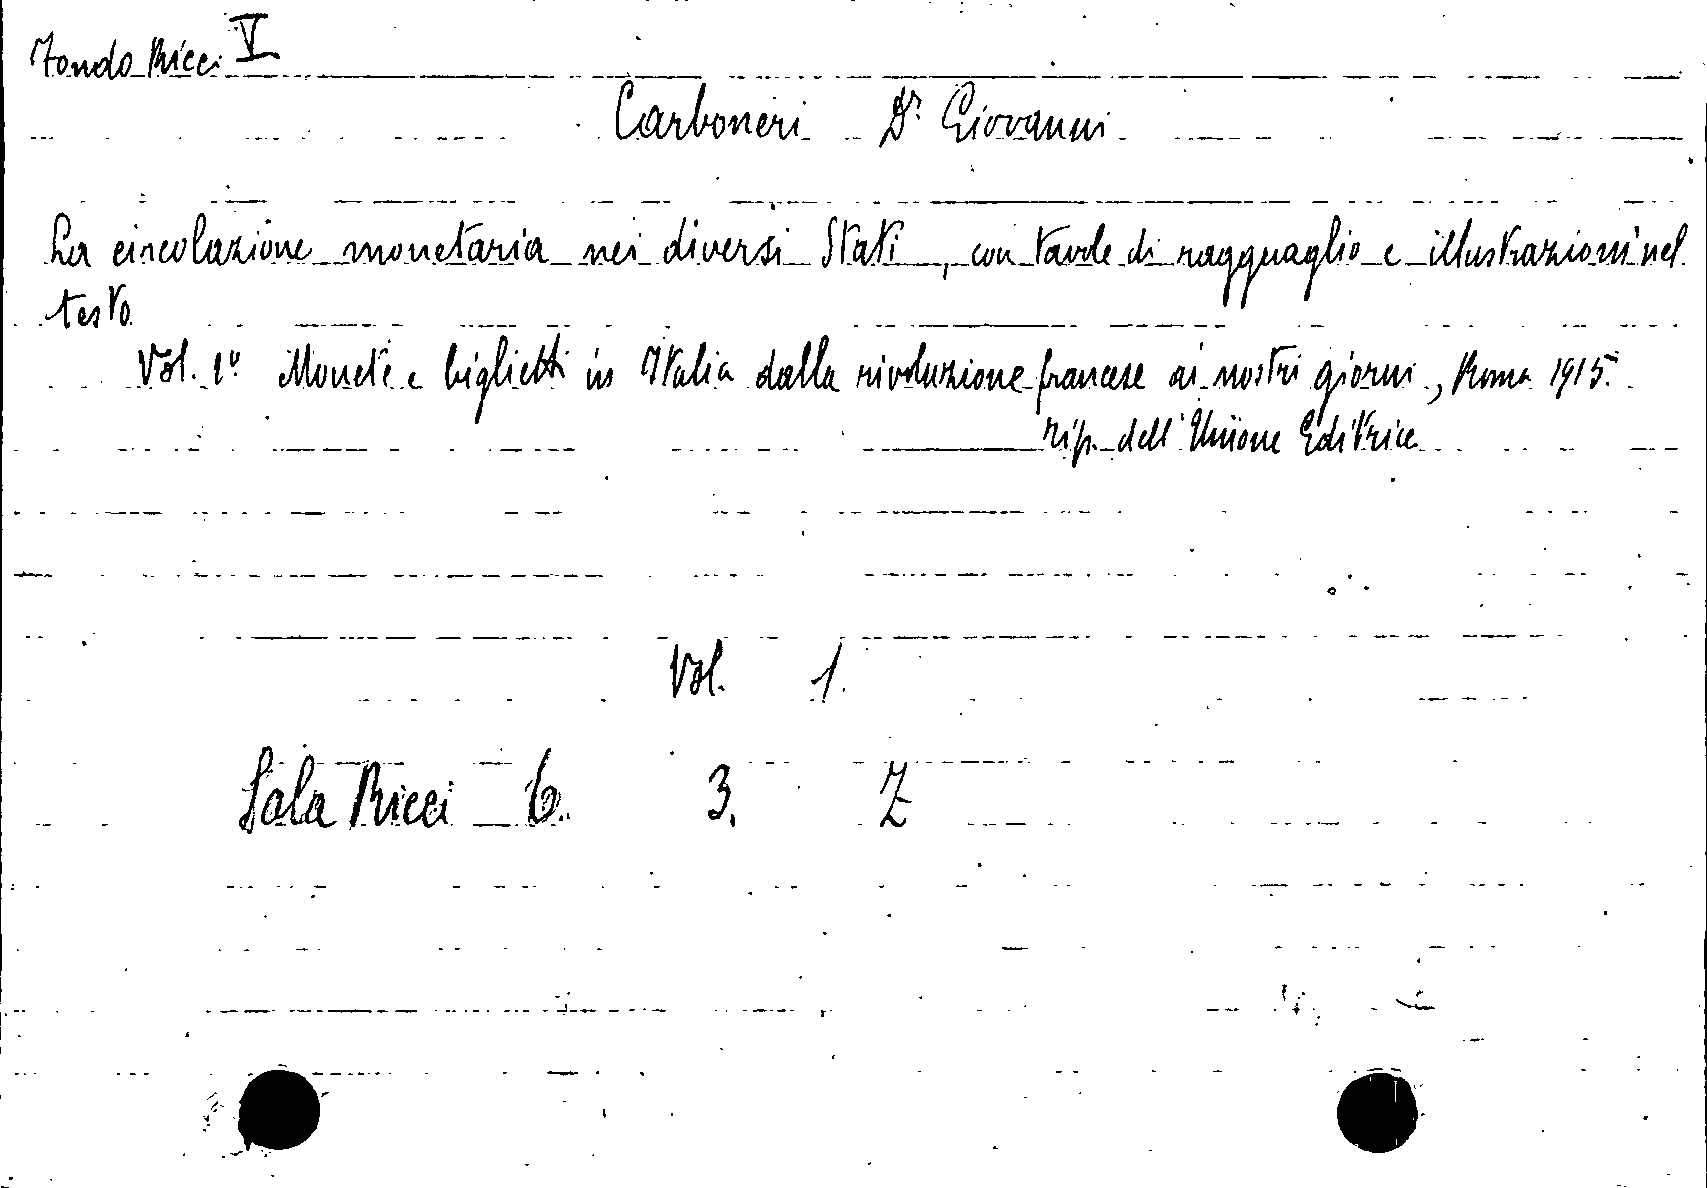 Fondo Ricci V
Carboneri Dr. Giovanni
La circolazione monetaria nei diversi Stati, con tavole di ragguaglio e illustrazioni nel
testo
Vol. 1º Monete e biglietti in Italia dalla rivoluzione francese ai nostri giorni, Roma 1915.
tip. dell'Unione Editrice
Vol. 1.
Sala Ricci 6. 3. Z